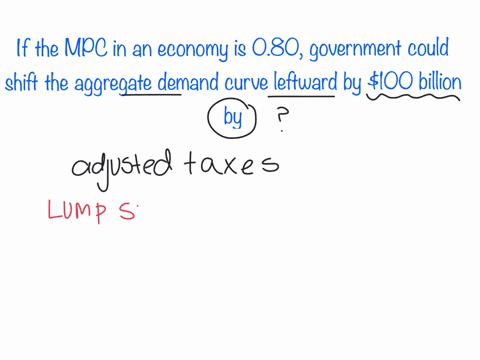 If the MPC in an economy is 0.80, government could
shift the aggregate demand curve leftward by $100 billion
by ?
adjusted taxes
LUMP S